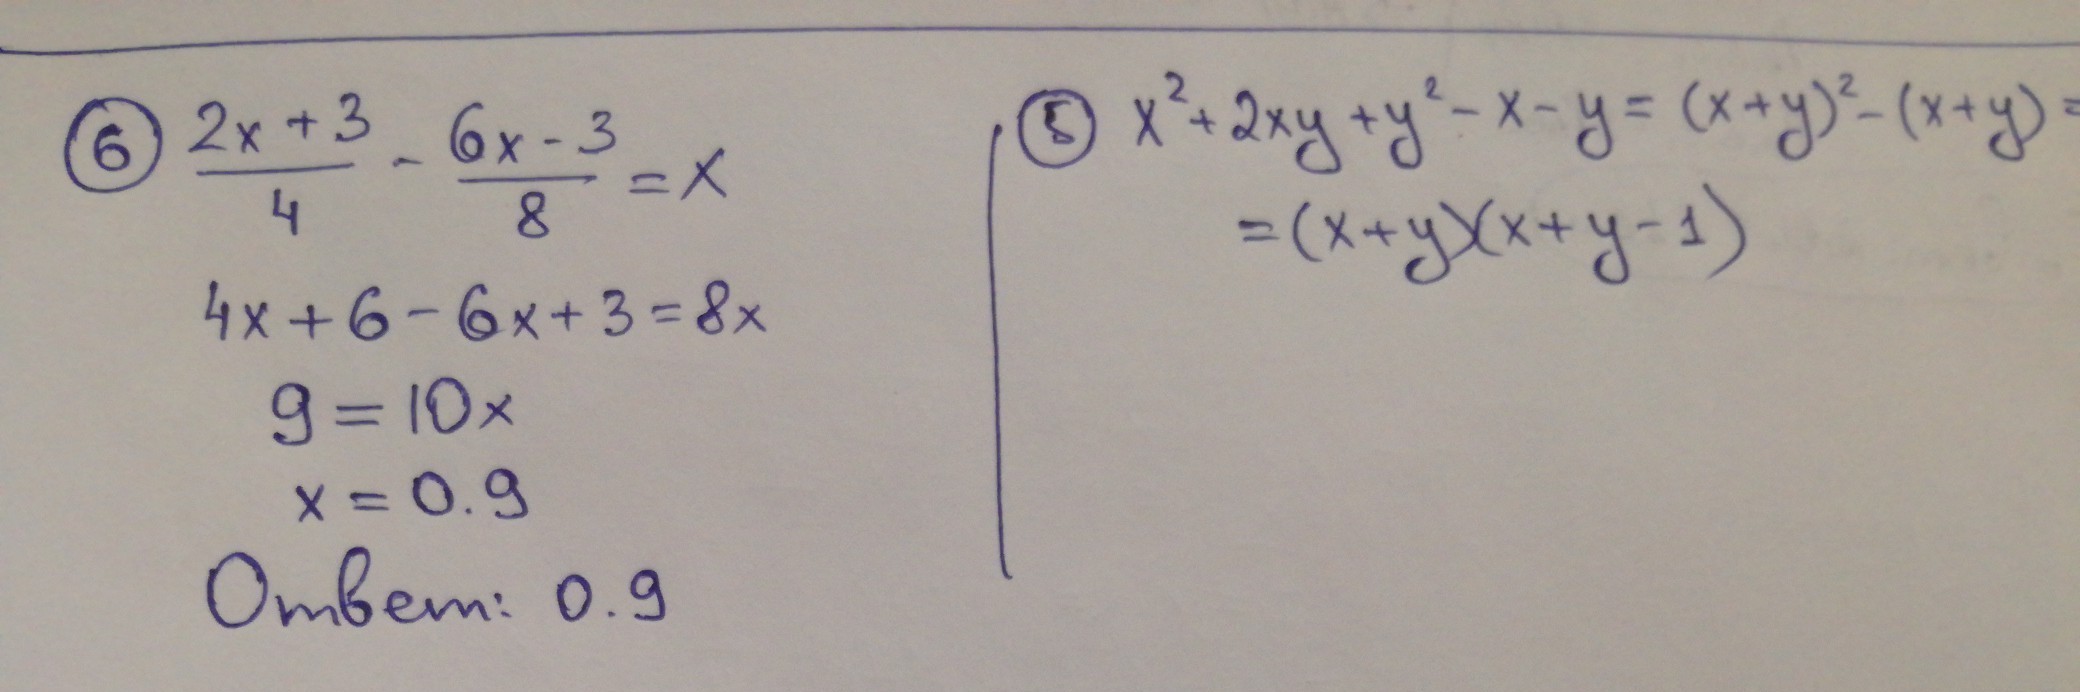 6 (2x + 3)/4 - (6x - 3)/8 = x
4x + 6 - 6x + 3 = 8x
9 = 10x
x = 0.9
Ответ: 0.9
5 x² + 2xy + y² - x - y = (x + y)² - (x + y) =
= (x + y)(x + y - 1)